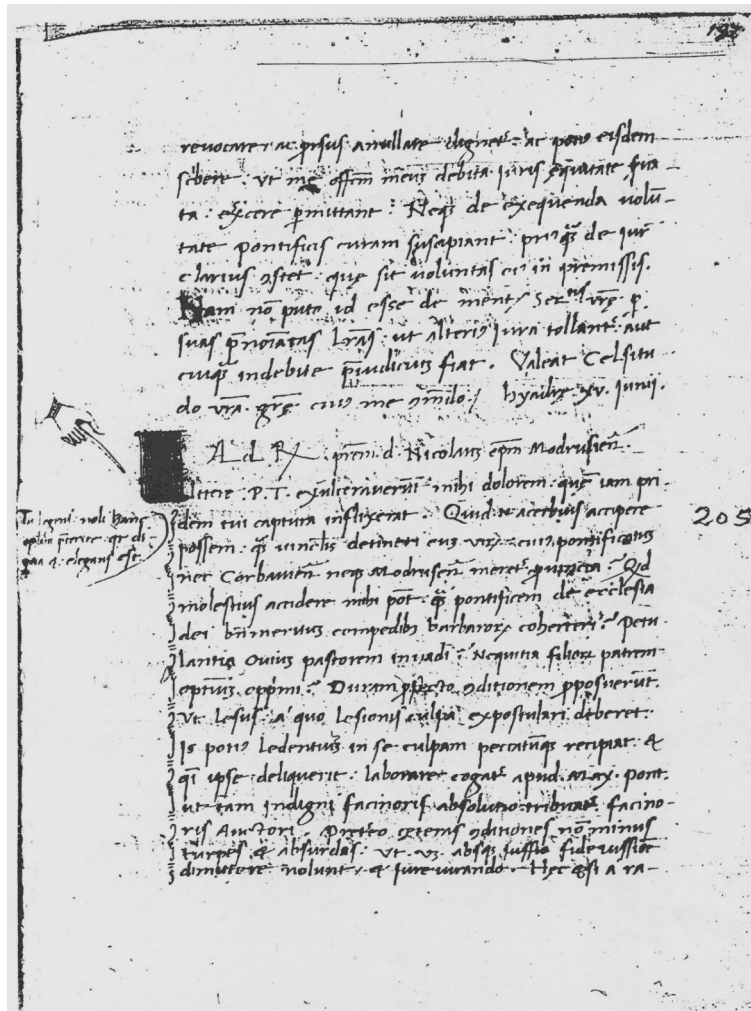 193
revocare ac prsus annullare dignet̄. ac potiꝰ eisdem
scbere. ut me offm̄ meuꝫ debita iuris equitate fua
ta: exercere pmittant. Neqꝫ de exequenda volū-
tate pontificis curam suscipiant: priꝰ qꝫ de iur̄
clarius ꝯstet: quę sit voluntas eiꝰ in premissis.
Nam non puto id esse de mente Sertis vrę p
suas pnoiatas lrās: ut alteriꝰ iura tollant̄: aut
cuiqꝫ indebite piudiciuꝫ fiat. Valeat Celsitu
do vrā. grę cuiꝰ me ꝯmdo. hyadre xv. iunii.
Ad Rꝫ prem̄ d. Nicolauꝫ epm̄ Modrusień.
Littere .P.T. exulceraverūt mihi dolorem. quē iam pri
dem tui captura inflixerat. Quid n̄ acerbius accipere
possem. qꝫ vinclis detineri euꝫ virꝫ. cuiꝰ pontificatus
nec Corbavień neqꝫ Modruseń meret̄ puincia? Qd
molestius accidere mihi pōt. qꝫ pontificem de ecclesia
dei bn̄meritūꝫ compedibꝫ barbarorꝫ coherceri? Petu
lantia Ovium pastorem invadi? Nequitia filiorꝫ patrem
optimūꝫ opprimi? Duram pfecto ꝯditionem pposuerūt.
Ut lesus: a quo lesionis culpa expostulari deberet:
Is potiꝰ ledentiuꝫ in se culpam peccatūqꝫ recipiat: &
qī ipse deliquerit: laborare cogat̄ apud Max. Pont.
ut tam indigni facinoris absolutio tribuat̄ facino-
ris Auctori. Pretteo ceteras ꝯditiones nō minus
turpes & absurdas: ut vꝫ absqꝫ iussio fideiussiōe
dimittere nolunt, & iureiurando. Hęc & si a ra-
Tu legens noli hanc
eplam preterire. qr di
gna & elegans est.
205